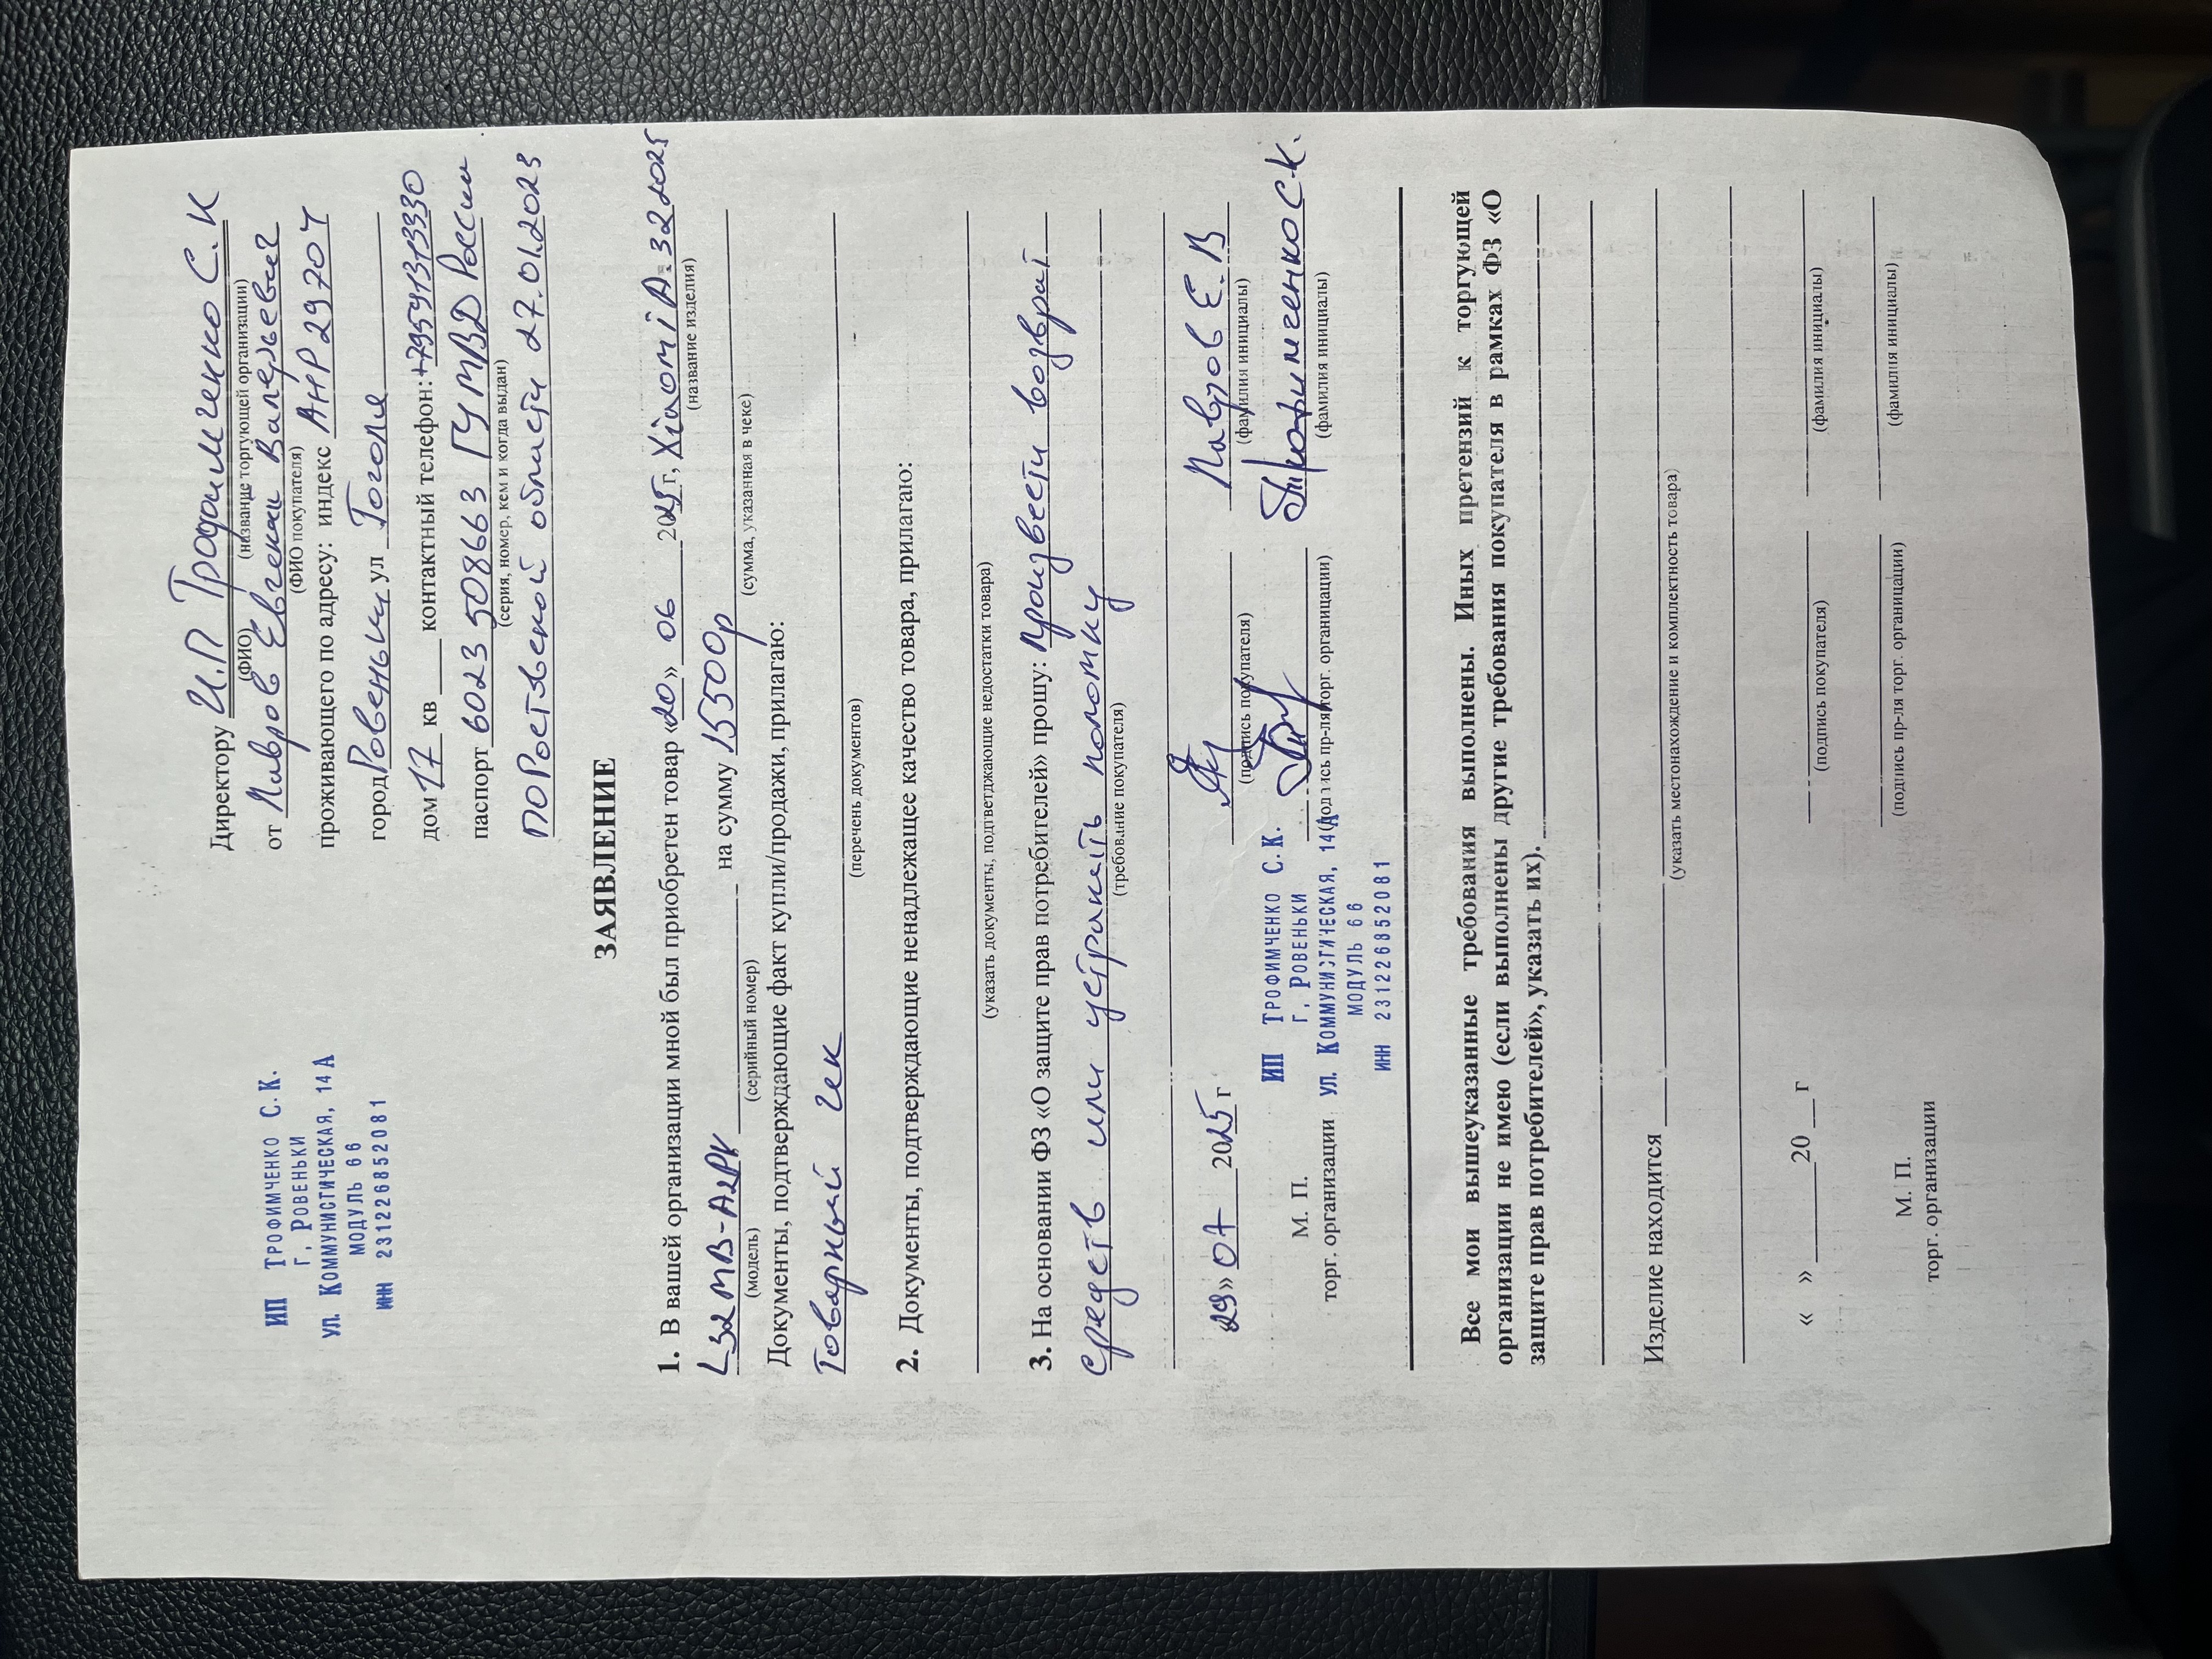 ИП ТРОФИМЧЕНКО С.К.
Г. РОВЕНЬКИ
УЛ. КОММУНИСТИЧЕСКАЯ, 14А
МОДУЛЬ 66
ИНН 231226852081
Директору И.П Трофимченко С.К
(ФИО) (название торгующей организации)
от Лавров Евгений Валерьевич
(ФИО покупателя)
проживающего по адресу: индекс ЛНР 29704
город Ровеньки ул Гоголя
дом 17 кв ___ контактный телефон: +79591313330
паспорт 6023 508663 ГУМВД России
(серия, номер, кем и когда выдан)
ПО Ростовской области 27.01.2023
ЗАЯВЛЕНИЕ
1. В вашей организации мной был приобретен товар «20» 06 2025г, Xiaomi A 32 2025
(название изделия)
L32MB-A2РУ на сумму 15500р
(модель) (серийный номер) (сумма, указанная в чеке)
Документы, подтверждающие факт купли/продажи, прилагаю:
Товарный чек
(перечень документов)
2. Документы, подтверждающие ненадлежащее качество товара, прилагаю:
(указать документы, подтверждающие недостатки товара)
3. На основании ФЗ «О защите прав потребителей» прошу: произвести возврат
средств или устранить поломку
(требование покупателя)
29» 07 2025 г Лавров Е.В
(подпись покупателя) (фамилия инициалы)
М. П. Трофимченко С.К.
торг. организации (подпись пр-ля торг. организации) (фамилия инициалы)
ИП ТРОФИМЧЕНКО С.К.
Г. РОВЕНЬКИ
УЛ. КОММУНИСТИЧЕСКАЯ, 14А
МОДУЛЬ 66
ИНН 231226852081
Все мои вышеуказанные требования выполнены. Иных претензий к торгующей
организации не имею (если выполнены другие требования покупателя в рамках ФЗ «О
защите прав потребителей», указать их).
Изделие находится
(указать местонахождение и комплектность товара)
« » ______ 20 __ г
(подпись покупателя) (фамилия инициалы)
М. П.
торг. организации (подпись пр-ля торг. органицации) (фамилия инициалы)